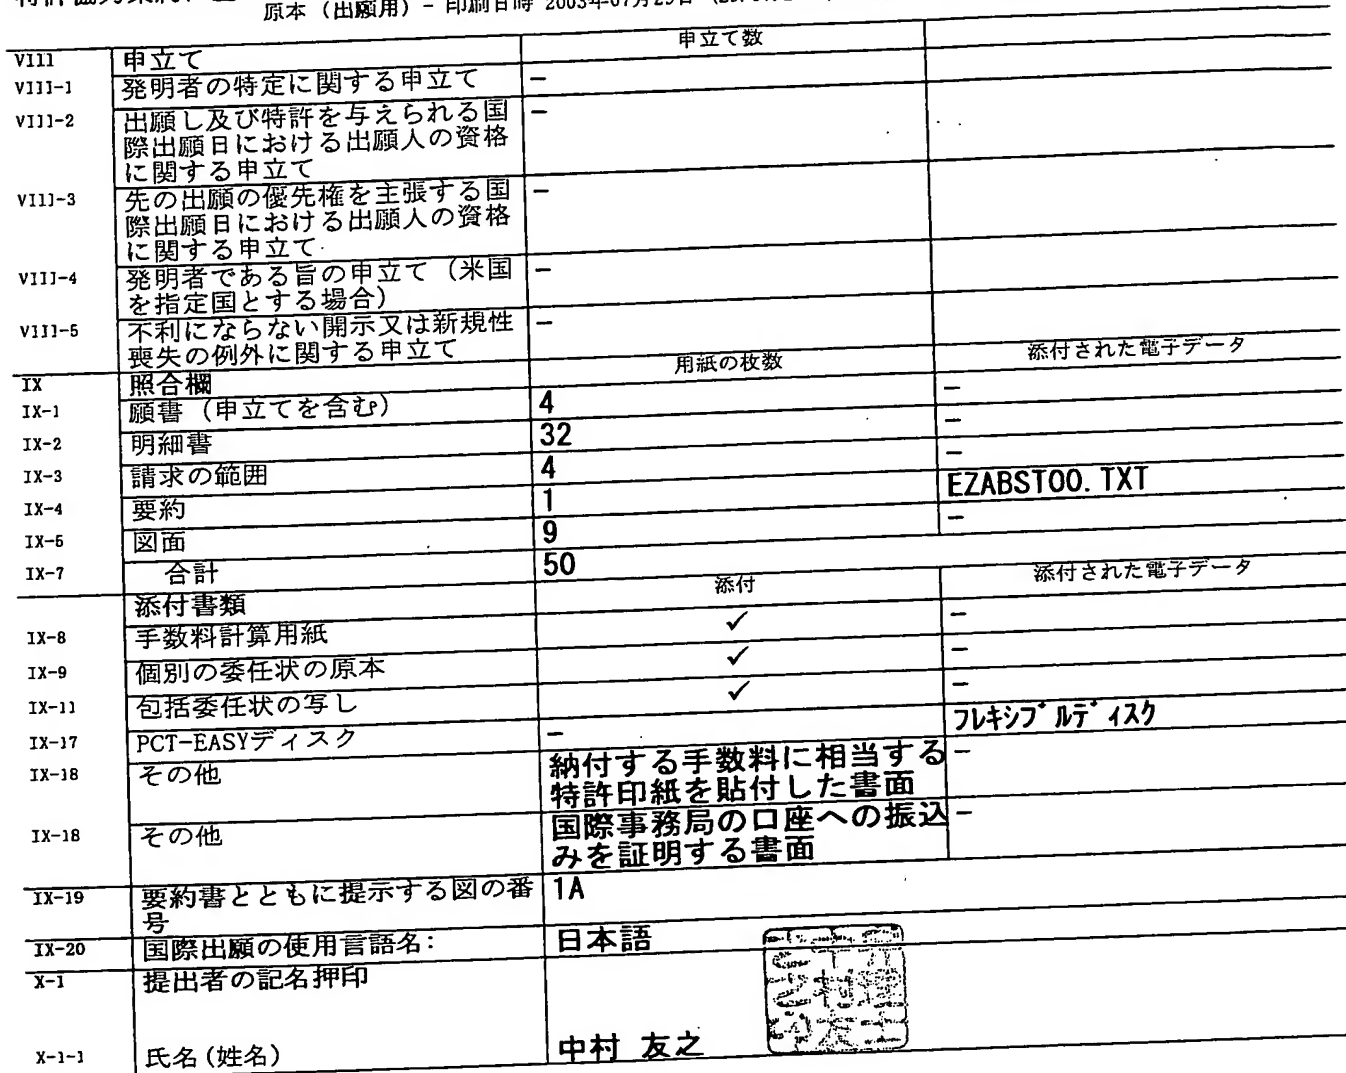 原本（出願用）- 印刷日時 2003年07月29日
VIII 申立て 申立て数
VIII-1 発明者の特定に関する申立て -
VIII-2 出願し及び特許を与えられる国 -
際出願日における出願人の資格
に関する申立て
VIII-3 先の出願の優先権を主張する国 -
際出願日における出願人の資格
に関する申立て
VIII-4 発明者である旨の申立て（米国 -
を指定国とする場合）
VIII-5 不利にならない開示又は新規性 -
喪失の例外に関する申立て
IX 照合欄 用紙の枚数 添付された電子データ
IX-1 願書（申立てを含む） 4 -
IX-2 明細書 32 -
IX-3 請求の範囲 4 -
IX-4 要約 1 EZABST00.TXT
IX-5 図面 9 -
IX-7 合計 50
添付書類 添付 添付された電子データ
IX-8 手数料計算用紙 ✓ -
IX-9 個別の委任状の原本 ✓ -
IX-11 包括委任状の写し ✓ -
IX-17 PCT-EASYディスク - フレキシブルディスク
IX-18 その他 納付する手数料に相当する -
特許印紙を貼付した書面
IX-18 その他 国際事務局の口座への振込 -
みを証明する書面
IX-19 要約書とともに提示する図の番 1A
号
IX-20 国際出願の使用言語名: 日本語
X-1 提出者の記名押印
X-1-1 氏名(姓名) 中村 友之